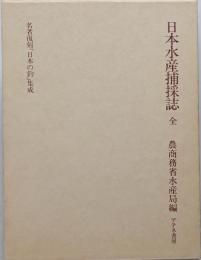 日本水産捕採誌 全
農商務省水産局編
アテネ書房
名著復刻「日本の釣」集成